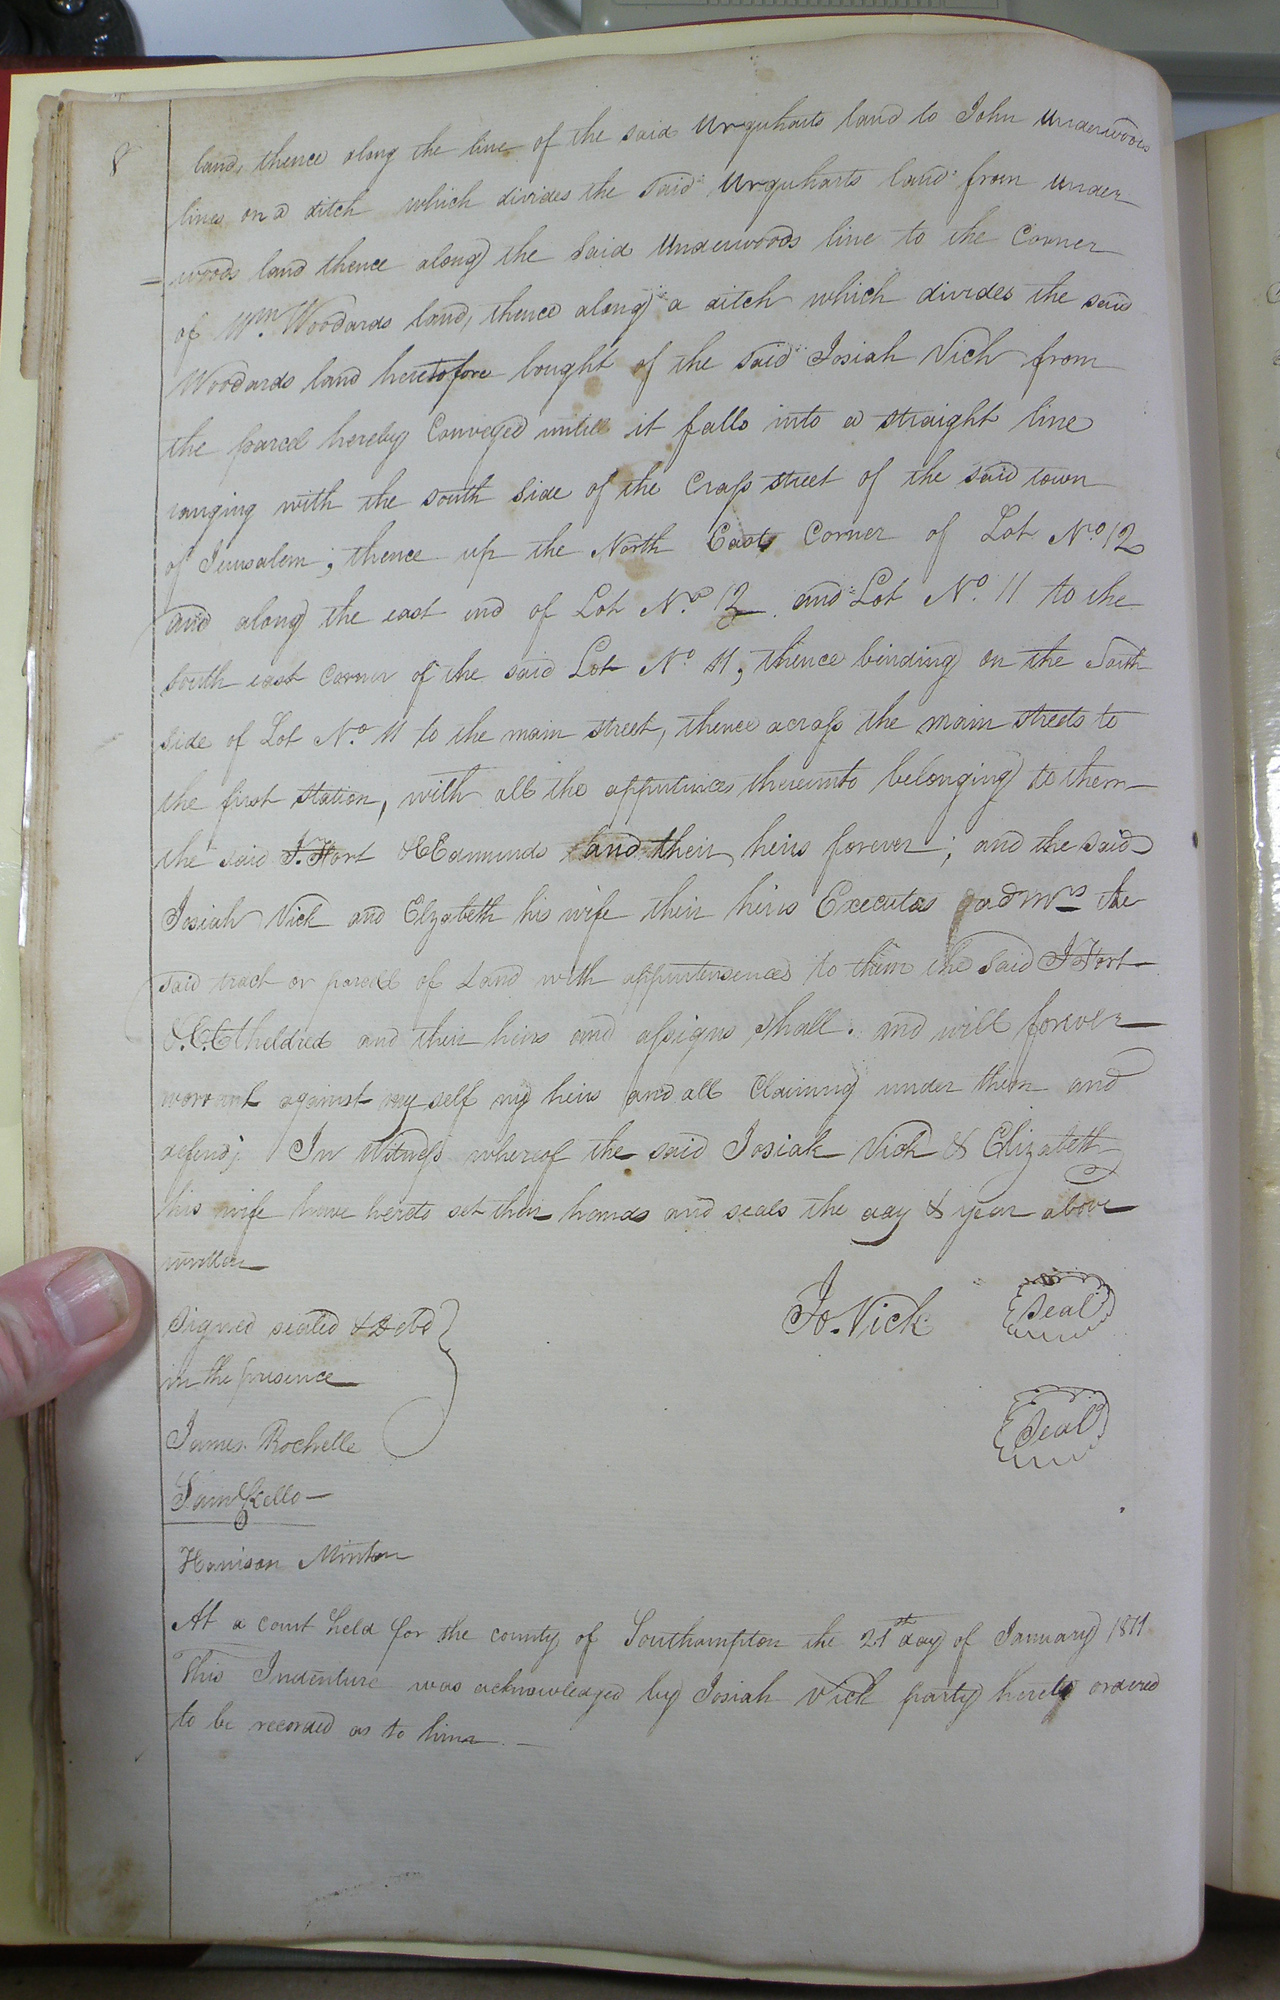 8
land, thence along the line of the said Urquharts land to John Underwoods
lines on a ditch which divides the said Urquharts land from under
= woods land thence along the said Underwoods line to the Corner
of Wm. Woodards land, thence along a ditch which divides the said
Woodards land heretofore bought of the said Josiah Vick from
the parcel hereby Conveyed untill it falls into a straight line
ranging with the south side of the Crass street of the said town
of Jerusalem; thence up the North East Corner of Lot No. 12
and along the east end of Lot No. 12 and Lot No. 11 to the
south east Corner of the said Lot No 11, thence binding on the South
side of Lot No. 11 to the main street, thence acrass the main streets to
the first station, with all the appurtinces thereunto belonging to them
the said J. Fort & Edmunds and their heirs forever; and the said
Josiah Vick and Elzabeth his wife their heirs Executos & admrs the
said tract or parcel of Land with appurtenences to them the said J Fort
& Etheldred and their heirs and assigns shall. and will forever
warrant against my self my heirs and all Claiming under them and
defend; In Witness whereof the said Josiah Vick & Elizabeth
his wife have hereto set their hands and seals the day & year above
written
Signed sealed & Deld
in the presence
Jo. Vick Seal
Seal
James Rochelle
Saml Kello
Harrison Minton
At a court held for the county of Southampton the 21th day of January 1811
This Indenture was acknowledged by Josiah Vick party hereto ordered
to be recorded as to him